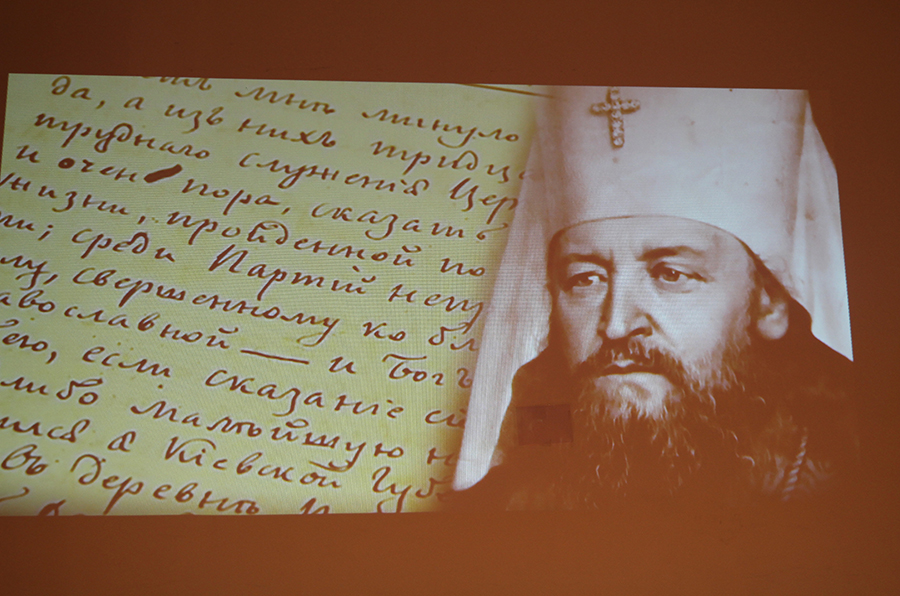 мнѣ минуло
да, а изъ нихъ тридца
труднаго служенія Цер
и очень пора, сказать
жизни, пройденной по
ти; среди Партій неп
му, свершенному ко бл
авославной — и Богъ
его, если сказаніе сі
либо малѣйшую н
ился в Кіевской Губ
въ деревнѣ